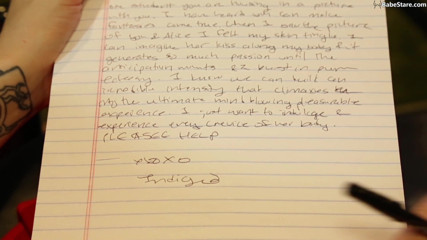 BabeStare.com
the student you are hanging in a picture
with you. I have heard with can make
fantasies come true. When I saw the picture
of you & Alice I felt my skin tingle. I
can imagine her kiss along my body & it
generates so much passion until the
anticipation wants
I know we can build
intensity that climaxes
into the ultimate mind blowing pleasurable
experience. I just want to indulge &
experience every crevice of her body.
PLEASEE HELP
XOXO